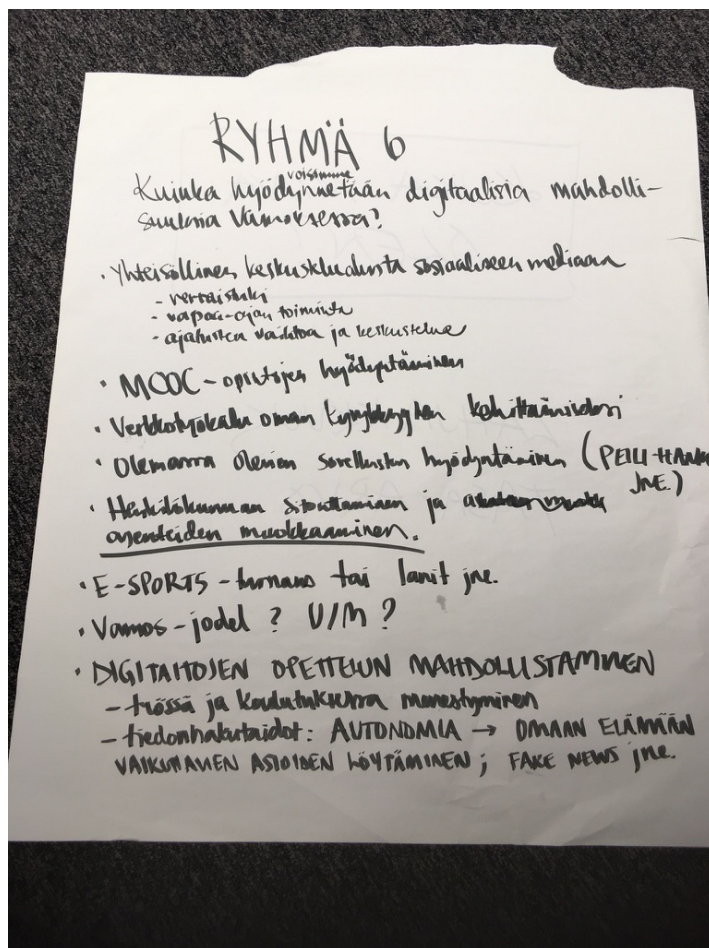 RYHMÄ 6
voisimme
Kuinka hyödynnetään digitaalisia mahdolli-
suuksia Vamoksessa?
· Yhteisöllinen keskustelualusta sosiaaliseen mediaan
- vertaistuki
- vapaa-ajan toiminta
- ajatusten vaihtoa ja keskustelua
· MOOC-opintojen hyödyntäminen
· Verkkotyökalu oman kehittämiseksi
· Olemassa olevien sovellusten hyödyntäminen (PEILI-HANKE
JNE.)
· Henkilökunnan sitouttaminen ja
asenteiden muokkaaminen.
· E-SPORTS - turnaus tai lanit jne.
· Vamos-jodel? U/M?
· DIGITAITOJEN OPETTELUN MAHDOLLISTAMINEN
- työssä ja koulutuksessa menestyminen
- tiedonhakutaidot: AUTONOMIA → OMAAN ELÄMÄÄN
VAIKUTTAVIEN ASIOIDEN LÖYTÄMINEN; FAKE NEWS jne.